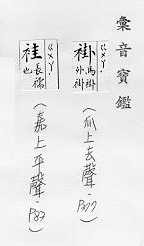 彙音寶鑑
褂 馬褂
外褂
(瓜上去聲,
袿 長襦
也
(嘉上平聲,